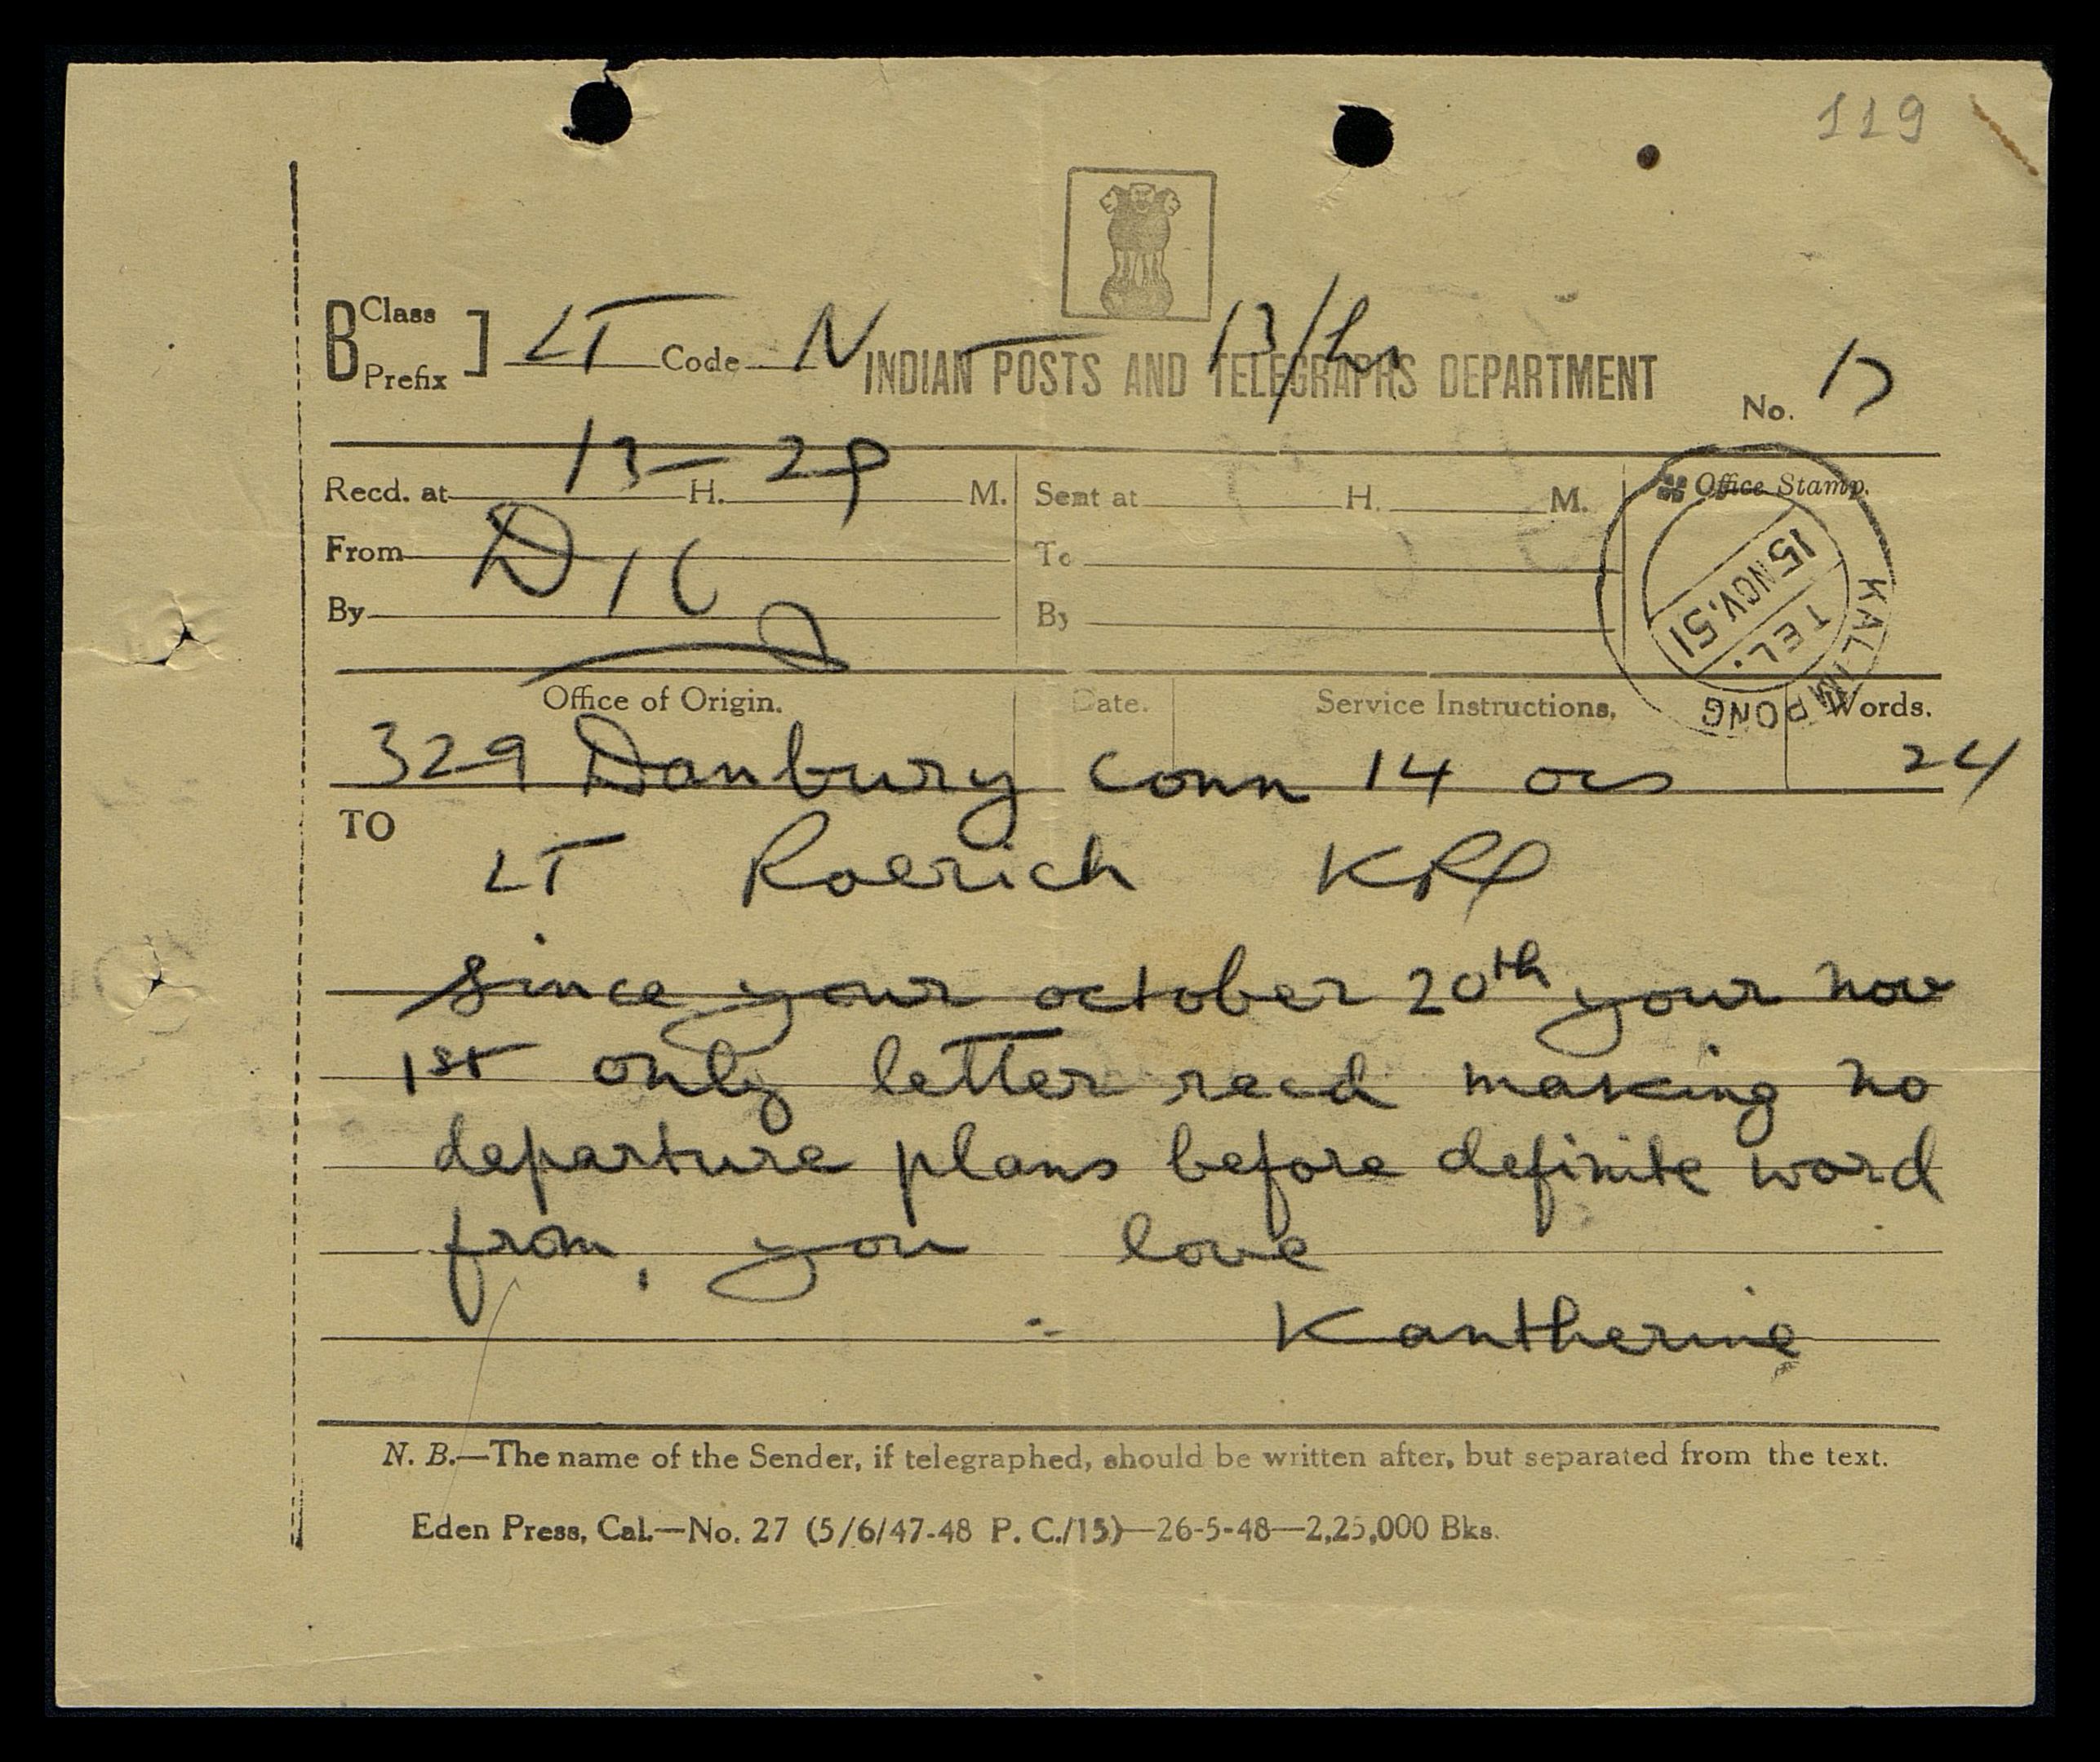 119
B Class Prefix ] LT Code N 13/hr
INDIAN POSTS AND TELEGRAPHS DEPARTMENT
No.
Recd. at 13 — H. 29 M. Sent at H. M. Office Stamp.
From To
By By
KALIMPONG TEL. 15 NOV. 51
Office of Origin. Date. Service Instructions, Words.
329 Danbury conn 14 24
TO
LT Roerich KPG
since your october 20th your nov
1st only letter recd making no
departure plans before definite word
from you love
Kantherine
N. B.—The name of the Sender, if telegraphed, should be written after, but separated from the text.
Eden Press, Cal.—No. 27 (5/6/47-48 P. C./15)—26-5-48—2,25,000 Bks.